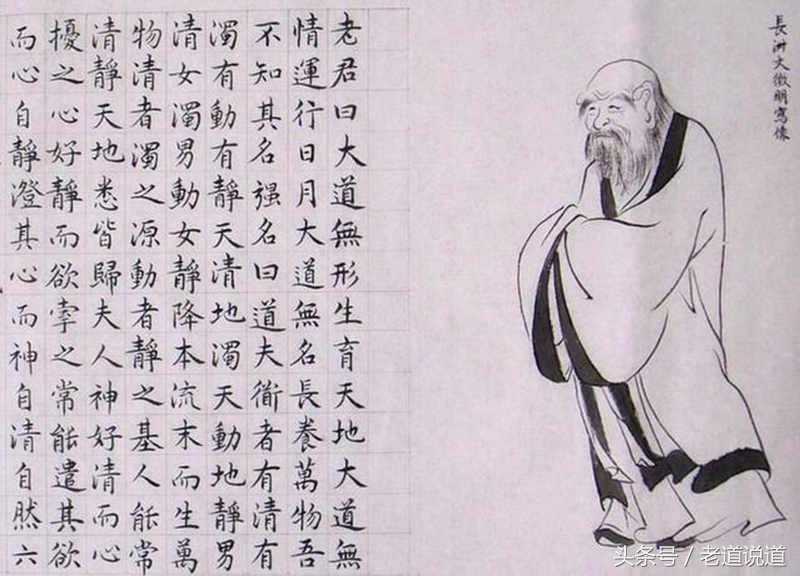 長洲文徵明寫像
老君曰大道無形生育天地大道無
情運行日月大道無名長養萬物吾
不知其名强名曰道夫衜者有清有
濁有動有靜天清地濁天動地靜男
清女濁男動女靜降本流末而生萬
物清者濁之源動者靜之基人能常
清靜天地悉皆歸夫人神好清而心
擾之心好靜而欲牽之常能遣其欲
而心自靜澄其心而神自清自然六
头条号 / 老道说道